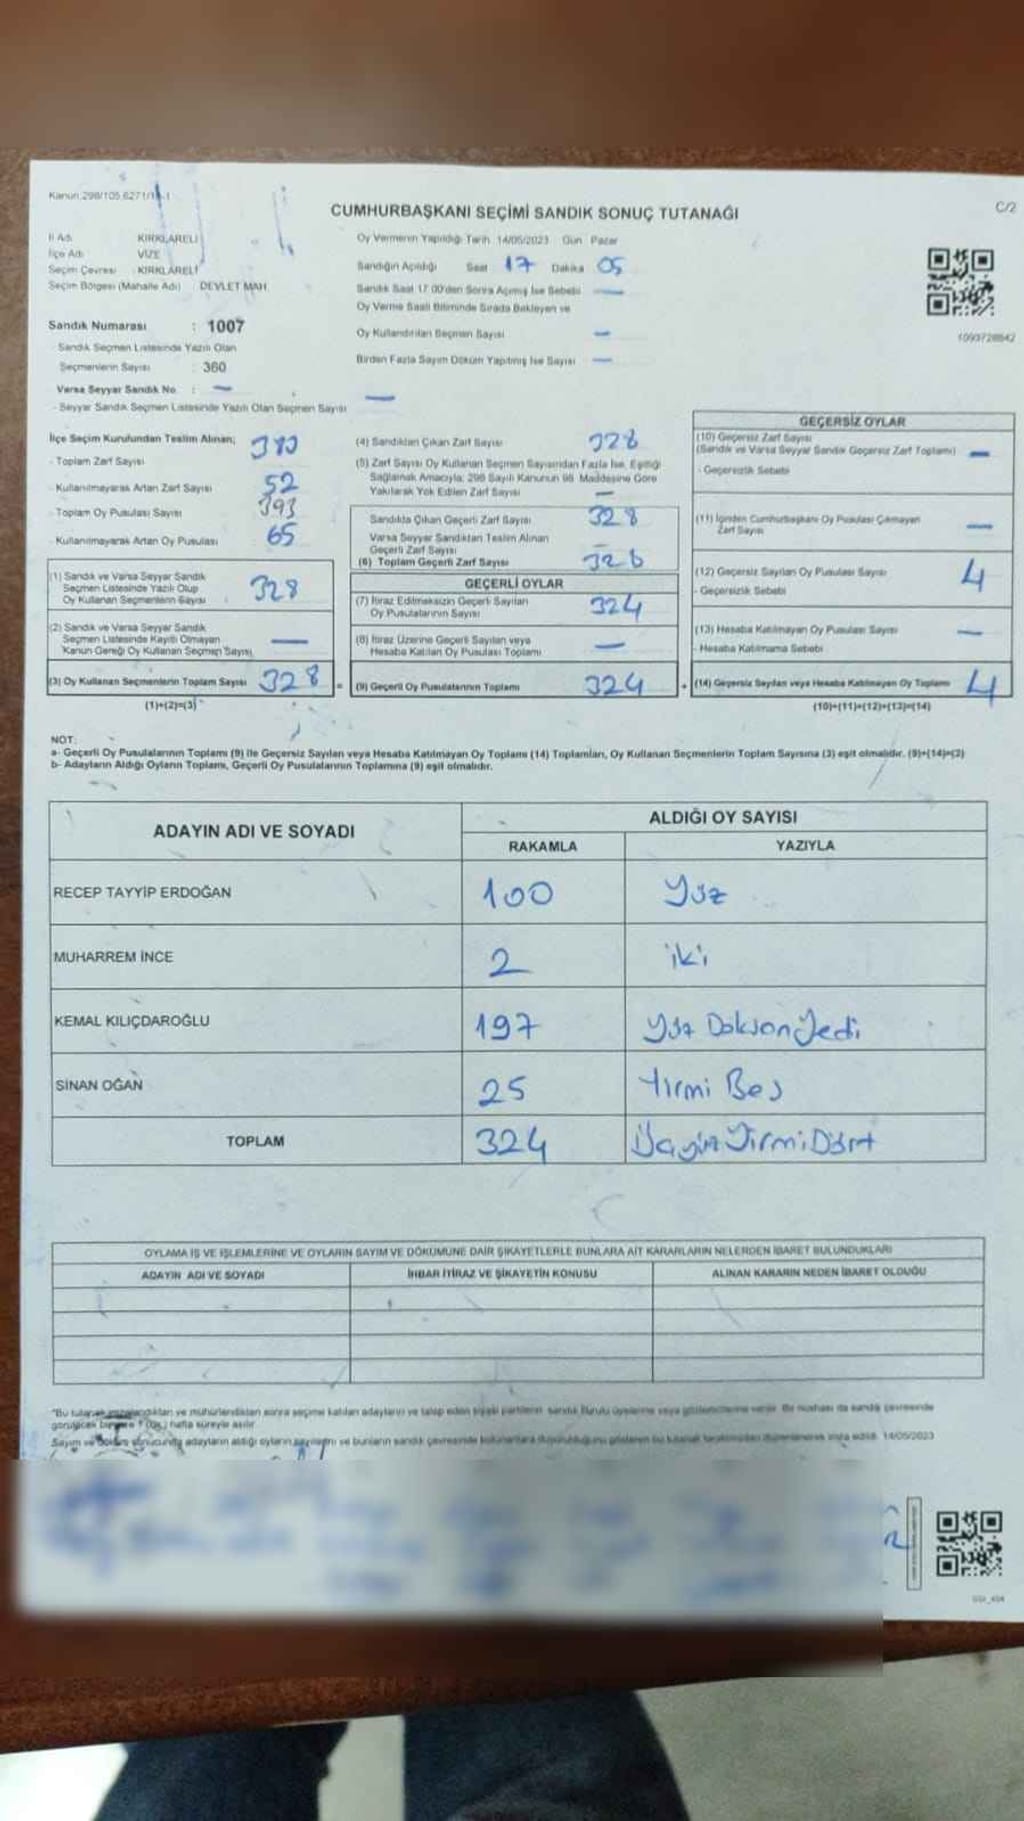 Kanun:298/105,6271/
C/2
CUMHURBAŞKANI SEÇİMİ SANDIK SONUÇ TUTANAĞI
İl Adı KIRKLARELİ
İlçe Adı VİZE
Seçim Çevresi : KIRKLARELİ
Seçim Bölgesi (Mahalle Adı) DEVLET MAH.
Oy Vermenin Yapıldığı Tarih 14/05/2023 Gün Pazar
Sandığın Açıldığı Saat 17 Dakika 05
Sandık Saat 17:00'den Sonra Açılmış İse Sebebi —
Oy Verme Saati Bitiminde Sırada Bekleyen ve
Oy Kullandırılan Seçmen Sayısı —
Birden Fazla Sayım Döküm Yapılmış İse Sayısı —
1093728842
Sandık Numarası : 1007
- Sandık Seçmen Listesinde Yazılı Olan
Seçmenlerin Sayısı : 360
Varsa Seyyar Sandık No : —
- Seyyar Sandık Seçmen Listesinde Yazılı Olan Seçmen Sayısı —
İlçe Seçim Kurulundan Teslim Alınan;
- Toplam Zarf Sayısı
- Kullanılmayarak Artan Zarf Sayısı 52
- Toplam Oy Pusulası Sayısı 393
- Kullanılmayarak Artan Oy Pusulası 65
(1) Sandık ve Varsa Seyyar Sandık
Seçmen Listesinde Yazılı Olup
Oy Kullanan Seçmenlerin Sayısı 328
(2) Sandık ve Varsa Seyyar Sandık
Seçmen Listesinde Kayıtlı Olmayan
Kanun Gereği Oy Kullanan Seçmen Sayısı —
(3) Oy Kullanan Seçmenlerin Toplam Sayısı 328 =
(1)+(2)=(3)
(4) Sandıktan Çıkan Zarf Sayısı 328
(5) Zarf Sayısı Oy Kullanan Seçmen Sayısından Fazla İse, Eşitliği
Sağlamak Amacıyla; 298 Sayılı Kanunun 98. Maddesine Göre
Yakılarak Yok Edilen Zarf Sayısı —
Sandıkta Çıkan Geçerli Zarf Sayısı 328
Varsa Seyyar Sandıktan Teslim Alınan
Geçerli Zarf Sayısı —
(6) Toplam Geçerli Zarf Sayısı 328
GEÇERLİ OYLAR
(7) İtiraz Edilmeksizin Geçerli Sayılan
Oy Pusulalarının Sayısı 324
(8) İtiraz Üzerine Geçerli Sayılan veya
Hesaba Katılan Oy Pusulası Toplamı —
(9) Geçerli Oy Pusulalarının Toplamı 324 +
GEÇERSİZ OYLAR
(10) Geçersiz Zarf Sayısı
(Sandık ve Varsa Seyyar Sandık Geçersiz Zarf Toplamı) —
- Geçersizlik Sebebi
(11) İçinden Cumhurbaşkanı Oy Pusulası Çıkmayan
Zarf Sayısı —
(12) Geçersiz Sayılan Oy Pusulası Sayısı 4
- Geçersizlik Sebebi
(13) Hesaba Katılmayan Oy Pusulası Sayısı —
- Hesaba Katılmama Sebebi
(14) Geçersiz Sayılan veya Hesaba Katılmayan Oy Toplamı 4
(10)+(11)+(12)+(13)=(14)
NOT:
a- Geçerli Oy Pusulalarının Toplamı (9) ile Geçersiz Sayılan veya Hesaba Katılmayan Oy Toplamı (14) Toplamları, Oy Kullanan Seçmenlerin Toplam Sayısına (3) eşit olmalıdır. (9)+(14)=(3)
b- Adayların Aldığı Oyların Toplamı, Geçerli Oy Pusulalarının Toplamına (9) eşit olmalıdır.
ADAYIN ADI VE SOYADI ALDIĞI OY SAYISI
RAKAMLA YAZIYLA
RECEP TAYYİP ERDOĞAN 100 Yüz
MUHARREM İNCE 2 iki
KEMAL KILIÇDAROĞLU 197 Yüz Doksan Yedi
SİNAN OĞAN 25 Yirmi Beş
TOPLAM 324 Üçyüz Yirmi Dört
OYLAMA İŞ VE İŞLEMLERİNE VE OYLARIN SAYIM VE DÖKÜMÜNE DAİR ŞİKAYETLERLE BUNLARA AİT KARARLARIN NELERDEN İBARET BULUNDUKLARI
ADAYIN ADI VE SOYADI İHBAR İTİRAZ VE ŞİKAYETİN KONUSU ALINAN KARARIN NEDEN İBARET OLDUĞU
*Bu tutanak imzalandıktan ve mühürlendikten sonra seçime katılan adayların ve talep eden siyasi partilerin sandık kurulu üyelerine veya gözlemcilerine verilir. Bir nüshası da sandık çevresinde
görülecek bir yere 1 (bir) hafta süreyle asılır.
Sayım ve döküm sonucunda adayların aldığı oyların sayılarını ve bunların sandık çevresinde
14/05/2023